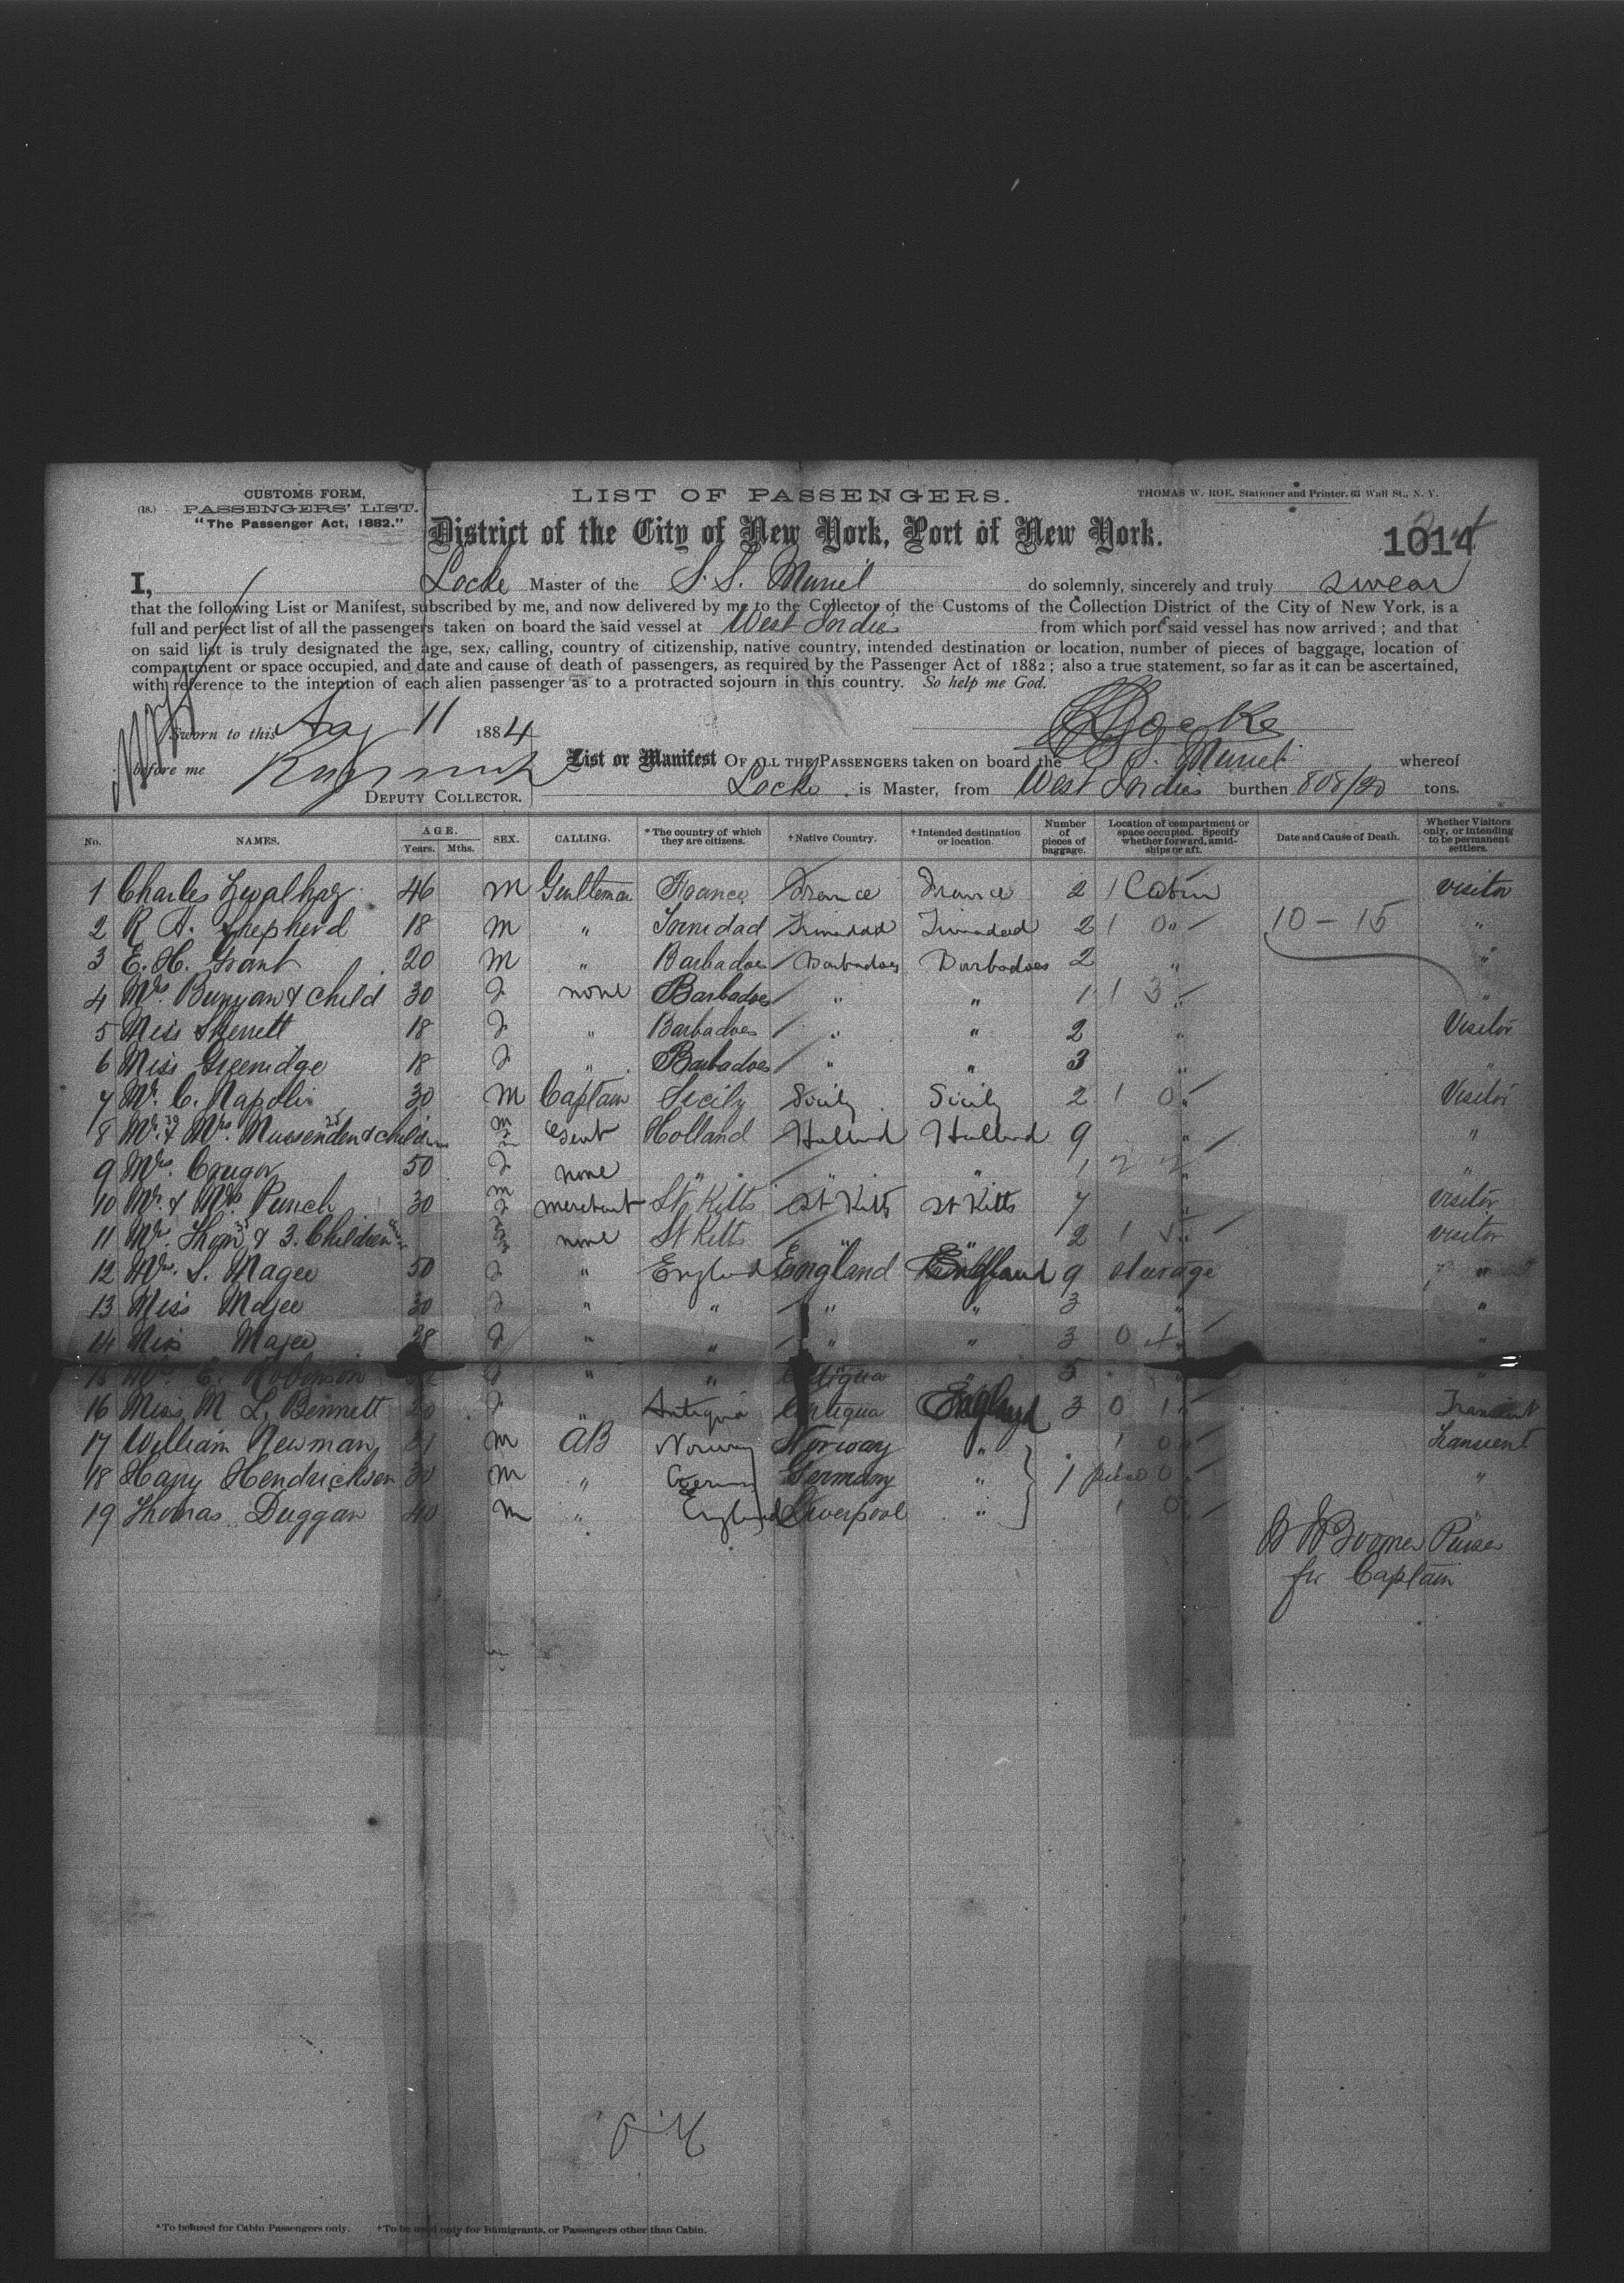 CUSTOMS FORM,
(18.) PASSENGERS' LIST.
"The Passenger Act, 1882."
LIST OF PASSENGERS.
THOMAS W. ROE, Stationer and Printer, 63 Wall St., N. Y.
District of the City of New York, Port of New York.
1014
I, Locke Master of the S. S. Muriel do solemnly, sincerely and truly swear
that the following List or Manifest, subscribed by me, and now delivered by me to the Collector of the Customs of the Collection District of the City of New York, is a
full and perfect list of all the passengers taken on board the said vessel at West Indies from which port said vessel has now arrived; and that
on said list is truly designated the age, sex, calling, country of citizenship, native country, intended destination or location, number of pieces of baggage, location of
compartment or space occupied, and date and cause of death of passengers, as required by the Passenger Act of 1882; also a true statement, so far as it can be ascertained,
with reference to the intention of each alien passenger as to a protracted sojourn in this country. So help me God.
Sworn to this Aug 11 1884
Locke
before me
DEPUTY COLLECTOR.
List or Manifest OF ALL THE PASSENGERS taken on board the S. S. Muriel whereof
Locke is Master, from West Indies burthen 808/20 tons.
No. NAMES. AGE. Years. Mths. SEX. CALLING. *The country of which they are citizens. †Native Country. †Intended destination or location. Number of pieces of baggage. Location of compartment or space occupied. Specify whether forward, amidships or aft. Date and Cause of Death. Whether Visitors only, or intending to be permanent settlers.
1 Charles 46 M Gentleman France France France 2 1 Cabin visitor
2 R A. Shepherd 18 M " Trinidad Trinidad Trinidad 2 1 0 " 10 - 15 "
3 E. H. Grant 20 M " Barbados Barbadoes Barbadoes 2 " "
4 Mrs. Bunyan & child 30 F none Barbados " " 1 1 3 " "
5 Miss Sherrett 18 F " Barbadoes " " 2 " Visitor
6 Miss Greenidge 18 F " Barbados " " 3 " "
7 Mr. C. Napoli 30 M Captain Sicily Sicily Sicily 2 1 0 " Visitor
8 Mr. 30 & Mrs. Mussenden 25 & children M F Gent Holland Holland Holland 9 " "
9 Mrs. Cruger 50 F none " " " 1 2 2 " "
10 Mr. & Mrs. Punch 30 M F merchant St Kitts St Kitts St Kitts 7 " visitor
11 Mrs. Thom & 3. Children none St Kitts " " 2 1 visitor
12 Mrs. S. Magee 50 F " England England England 9 steerage "
13 Miss Magee 30 F " " " " 3 " "
14 Miss Magee 28 F " " " " 3 0 4 " "
15 E. Robinson F " " Antigua " 5 "
16 Miss M L. Bennett 20 F " Antigua Antigua England 3 0 1 " Transient
17 William Newman 31 M AB Norway Norway " 1 0 " Transient
18 Harry Hendricksen 30 M " Germany Germany " 1 piece 0 " "
19 Thomas Duggan 40 M " England Liverpool " 1 0 "
Boomer Purser
for Captain
*To be used for Cabin Passengers only. †To be used only for Immigrants, or Passengers other than Cabin.